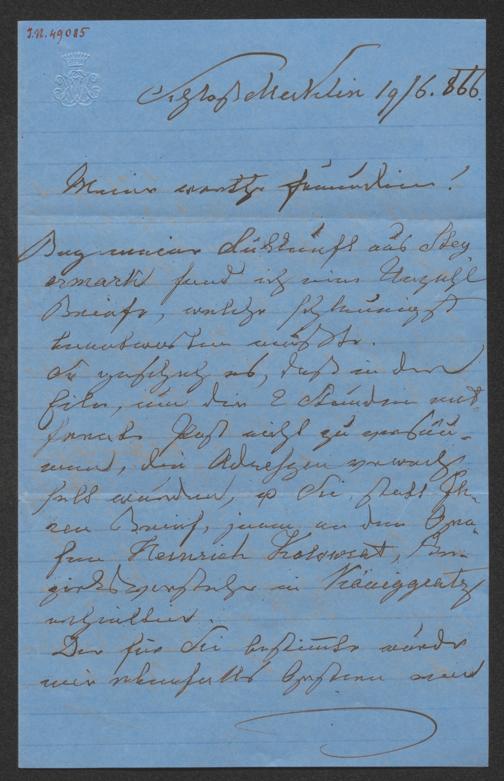 I.N. 49085
Schloß Merklin 19/6. 866.
Meine werthe Freundin!
Bey meiner Rükkunft aus Stey
ermark fand ich eine Unzahl
Briefe, welche schleunigst
beantwortet
So geschah es, daß in der
Eile, um die 2 Stunden ent-
fernte Post nicht zu versäu-
men, die Adressen verwech-
selt wurden, u Sie statt Ih-
ren Brief, jenen an den Gra-
fen Heinrich Kolowrat, Be-
zirksvorsteher in Königgratz
erhielten.
Der für Sie bestimmte wurde
mir ebenfalls gestern